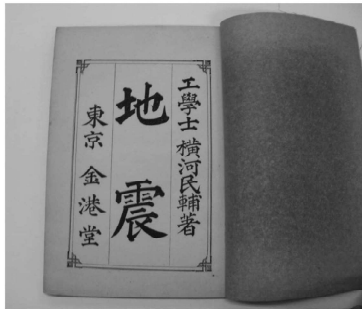 工學士 橫河民輔著
地震
東京 金港堂